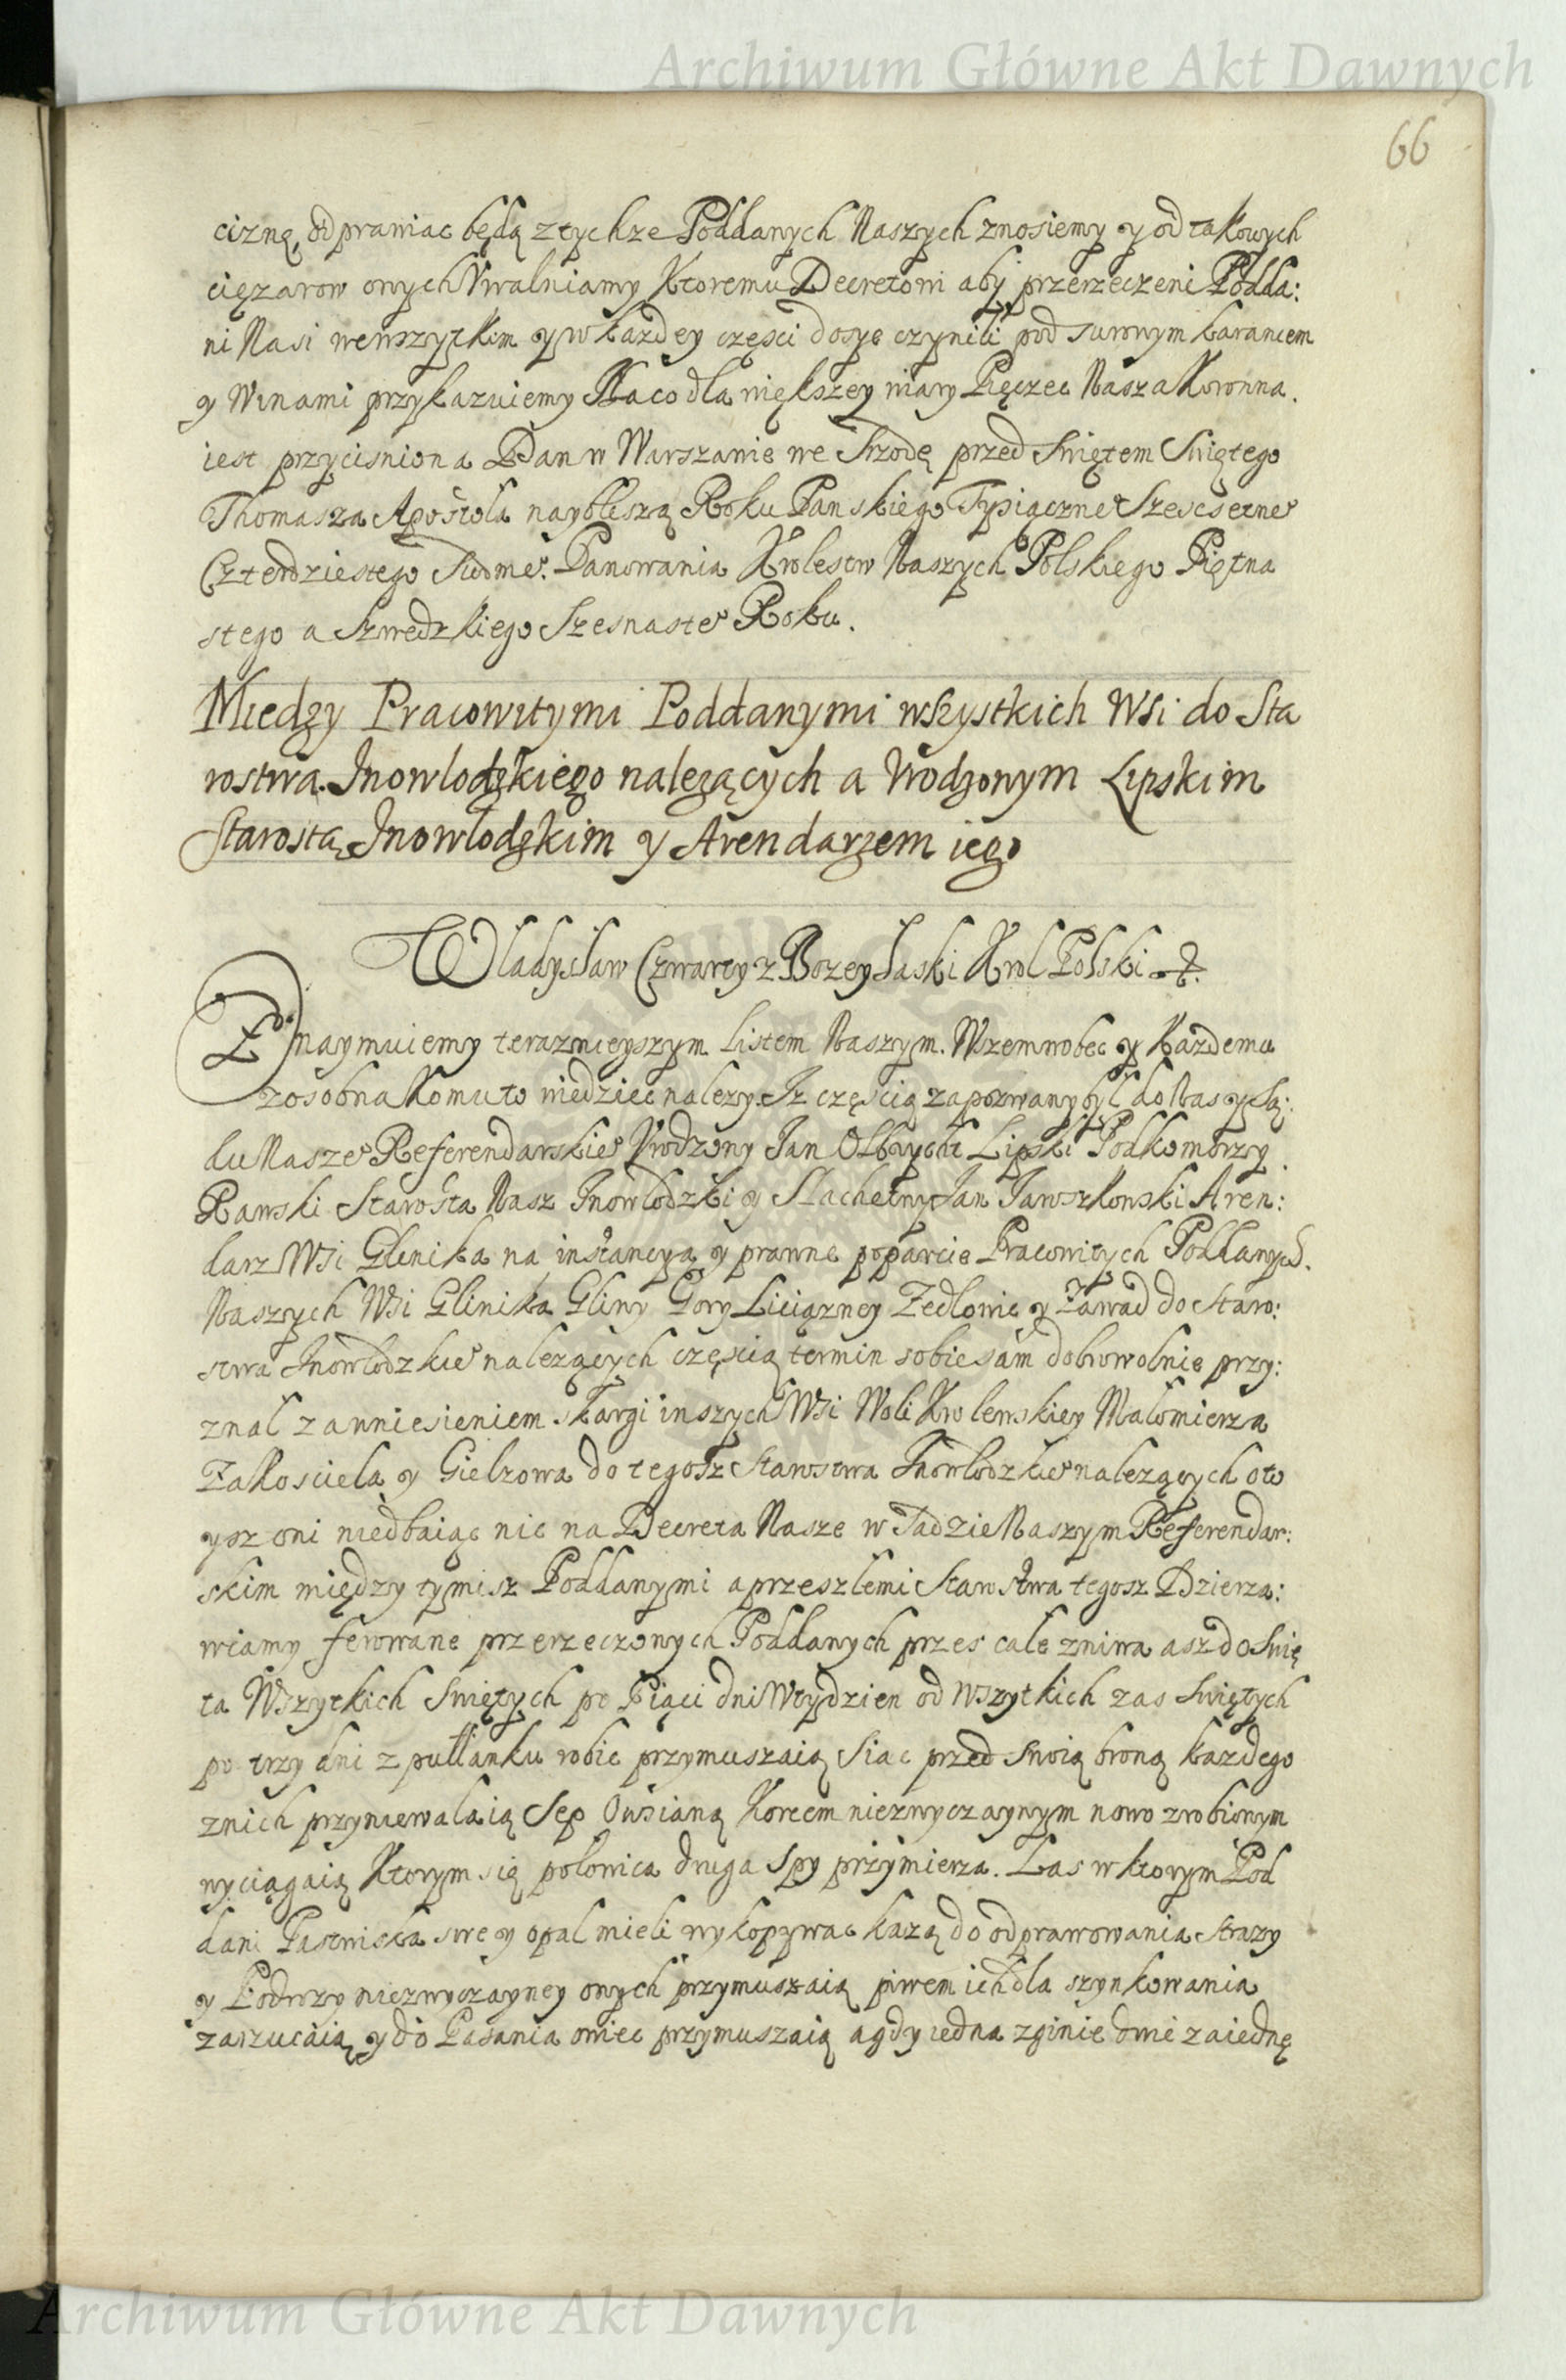 Archiwum Główne Akt Dawnych
66
ciznę, odprawiac będą ztychze Poddanych Naszych znosiemy y od takowych
cięzarow onych Vwalniamy Ktoremu Decretowi aby przerzeczeni Podda:
ni Nasi wewszytkim y w kazdey częsci dosyc czynili pod surowym karaniem
y Winami przykazuiemy Na co dla większey wiary Pięczec Nasza Koronna.
iest przycisniona Dan w Warszawie we Srzodę przed Swiętem Swiętego
Thomasza Apostola naybliszą Roku Panskiego Tysiącznego Szescsetnego
Czterdziestego Siodmego. Panowania Krolestw Naszych Polskiego Piętna
stego a Szwedzkiego Szesnastego Roku.
Miedzy Pracowitymi Poddanymi wszystkich Wsi do Sta
rostwa Inowlodzkiego nalezących a Vrodzonym Lipskim
Starostą Inowlodzkim y Arendarzem iego
Wladyslaw Czwarty z Bozey Laski Krol Polski &.
Znaymuiemy teraznieyszym Listem Naszym. Wszemwobec y Kazdemu
zosobna Komu to wiedziec nalezy. Iz częscią zapozwany był do Nas y Są:
du Naszego Referendarskiego Vrodzony Jan Olbrycht Lipski Podkomorzy
Rawski Starosta Nasz Inowlodzki y Slachetny Jan Jaroszkowski Aren:
darz Wsi Glinika na instancyą y prawne poparcie Pracowitych Poddanych.
Naszych Wsi Glinika Gliny Gory Liciązney Zedlowic y Zawad do Staro:
stwa Inowlodzkiego nalezących częscią termin sobie sam dobrowolnie przy:
znal zawniesieniem skargi inszych Wsi Woli Krolewskiey Malomierza
Zakosciela y Gielzowa do tegosz Starostwa Inowlodzkiego nalezących oto
ysz oni niedbaiąc nic na Decreta Nasze w Sadzie Naszym Referendar:
skim między tymisz Poddanymi a przeszlemi Starostwa tegosz Dzierza:
wcamy ferowane przerzeczonych Poddanych przes cale zniwa asz do Swię
ta Wszytkich Swiętych po Piąci dni w tydzien od Wszytkich zas Swiętych
po trzy dni z pullanku robic przymuszaią Siac przed swoią broną kazdego
znich przyniewalaią Sep Owsianą Korcem niezwyczaynym nowo zrobionym
wyciągaią Ktorym się polowica druga Spy przymierza. Las w ktorym Pod
dani Pastwiska swe y opal mieli wykopywac kazą do odprawowania Strazy
y Podwozy niezwyczayney onych przymuszaią piwem ich dla szynkowania
zarzucaią y do Pasania owiec przymuszaią a gdy iedna zginie dwie zaiednę
Archiwum Główne Akt Dawnych